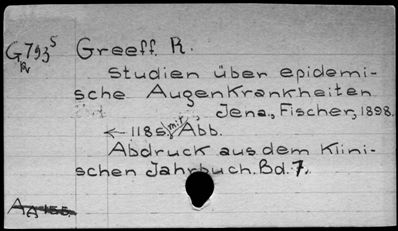 G793⁵ Greeff. R.
R
Studien über epidemi-
sche Augenkrankheiten
Jena, Fischer, 1898.
← 118 s. mit Abb.
Abdruck aus dem Klini-
schen Jahrbuch. Bd. 7.